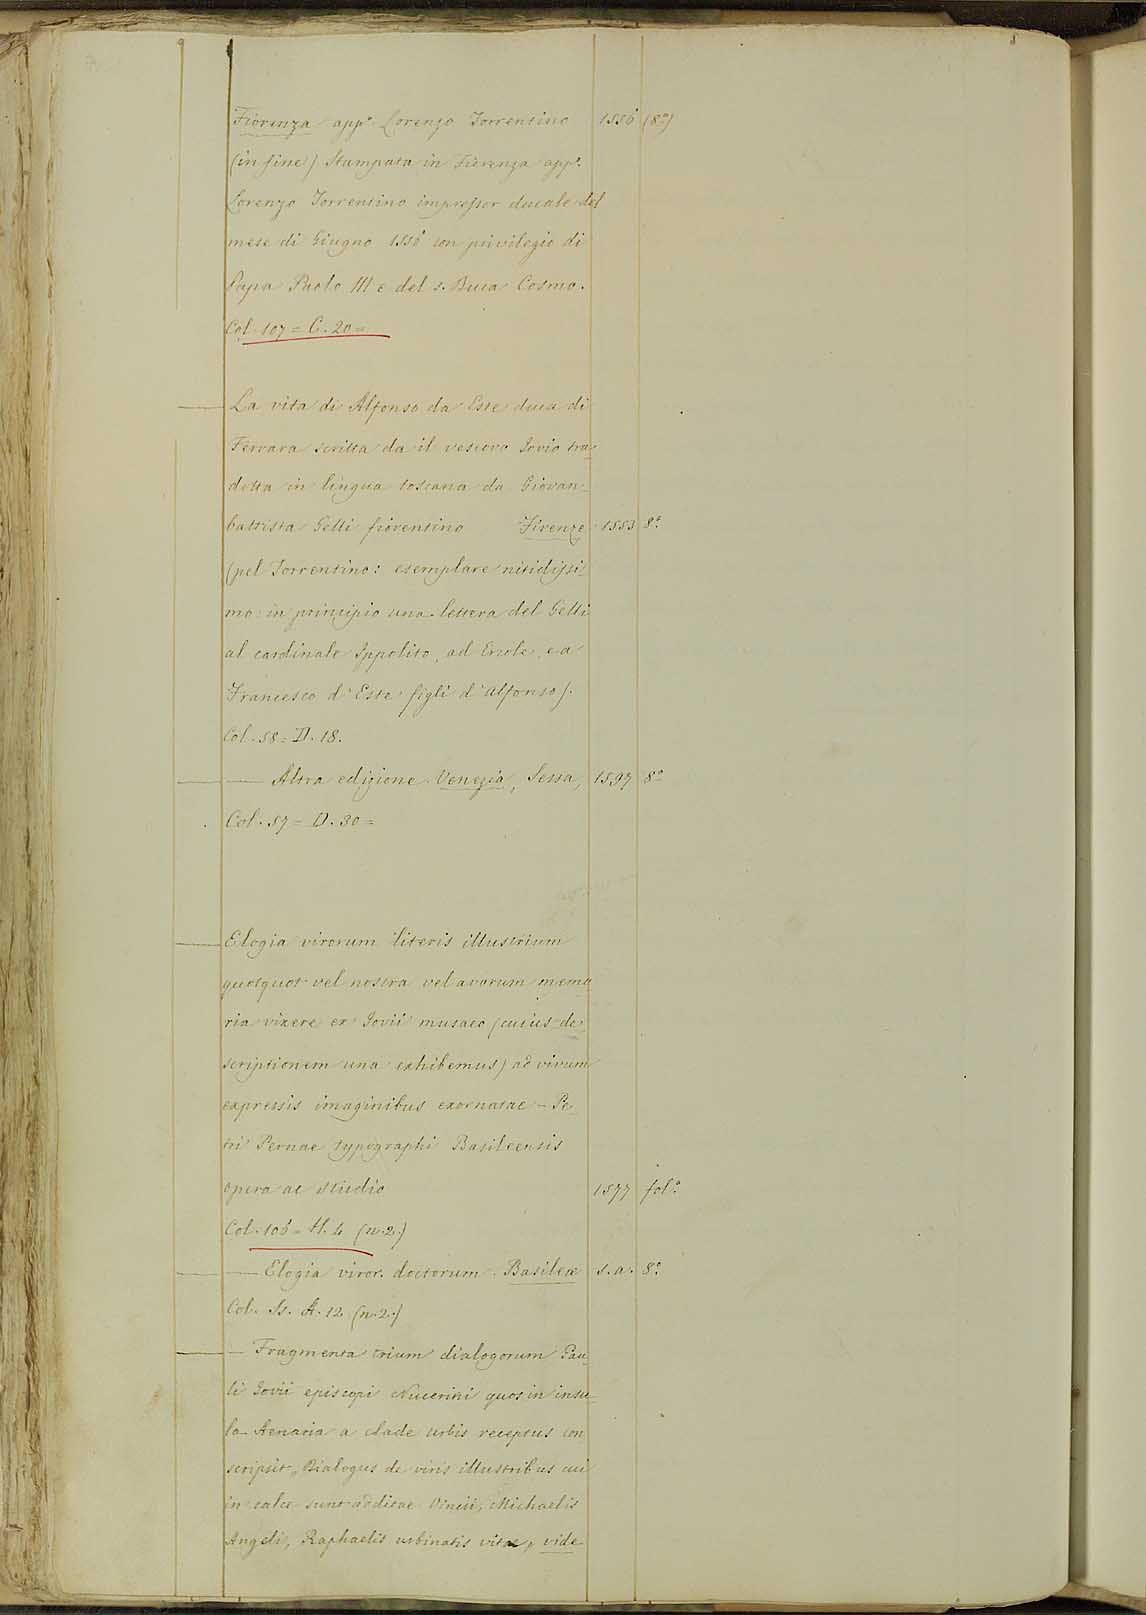 Fiorenza appº Lorenzo Torrentino 1556 (8º)
(in fine) Stampata in Fiorenza appº.
Lorenzo Torrentino impressor ducale del
mese di Giugno 1556 con privilegio di
Papa Paolo III e del s. Duca Cosmo.
Col. 107 = C. 20 =
La vita di Alfonso da Este duca di
Ferrara scritta da il vescovo Jovio tra-
dotta in lingua toscana da Giovan-
battista Gelli fiorentino Firenze 1553 8º.
(pel Torrentino: esemplare nitidissi-
mo: in principio una lettera del Gelli
al cardinale Ippolito, ad Ercole, e a
Francesco d'Este figli d'Alfonso).
Col. 58 = D. 18.
— Altra edizione Venezia, Sessa, 1597 8º
Col. 57 = D. 30 =
Elogia virorum literis illustrium
quotquot vel nostra vel avorum memo-
ria vixere ex Jovii musaeo (cuius de-
scriptionem una exhibemus) ad vivum
expressis imaginibus exornatae — Pe-
tri Pernae typographi Basileensis
opera ac studio 1577 folº.
Col. 106 = H. 4 (n. 2.)
— Elogia viror. doctorum. Basileæ s. a. 8º.
Col. A. 12 (n. 2.)
— Fragmenta trium dialogorum Pau-
li Jovii episcopi Nucerini quos in insu-
la Aenaria a clade urbis receptus con
scripsit, Dialogus de viris illustribus cui
in calce sunt additae Vincii, Michaelis
Angeli, Raphaelis urbinatis vitae, vide